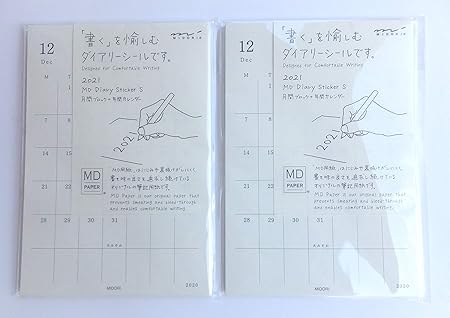 12
Dec
「書く」を愉しむ
ダイアリーシールです。
Designed for Comfortable Writing
MIDORI
2021
MD Diary Sticker S
月間ブロック+年間カレンダー
M T
1
7 8
14 15
21 22
28 29 30 31
2021
MD
PAPER
MD用紙は、にじみや裏抜けがしにくく、
書き味の良さを追求し続けている
オリジナルの筆記用紙です。
MD Paper is our original paper that
prevents smearing and bleed-through
and enables comfortable writing.
MIDORI
2020
12
Dec
「書く」を愉しむ
ダイアリーシールです。
Designed for Comfortable Writing
MIDORI
2021
MD Diary Sticker S
月間ブロック+年間カレンダー
M T
1
7 8
14 15
21 22
28 29 30 31
2021
MD
PAPER
MD用紙は、にじみや裏抜けがしにくく、
書き味の良さを追求し続けている
オリジナルの筆記用紙です。
MD Paper is our original paper that
prevents smearing and bleed-through
and enables comfortable writing.
MIDORI
2020